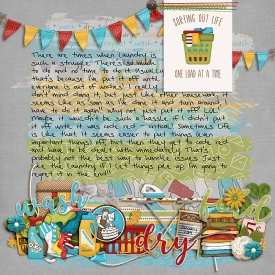 SORTING OUT LIFE
ONE LOAD AT A TIME
There are times when laundry is
such a struggle. There's so much
to do and no time to do it. Usually
that's because I'm put it off and
everyone is out of undies! I really
don't mind doing it, but just like other housework, it
seems like as soon as I'm done it and turn around,
had to do it again! Why not just put it off? Like
Maybe it wouldn't be such a hassle if I didn't put
it off until it was code red - critical. Sometimes life
is like that. It seems easier to put things (even
important things) off, but then they get to code red
and have to be dealt with immediately. That's
probably not the best way to handle issues. Just
like the laundry, if I let things pile up, I'm going to
regret it in the end!!
wash
dry
fold
5¢